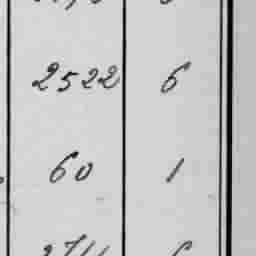 2522 6
60 1